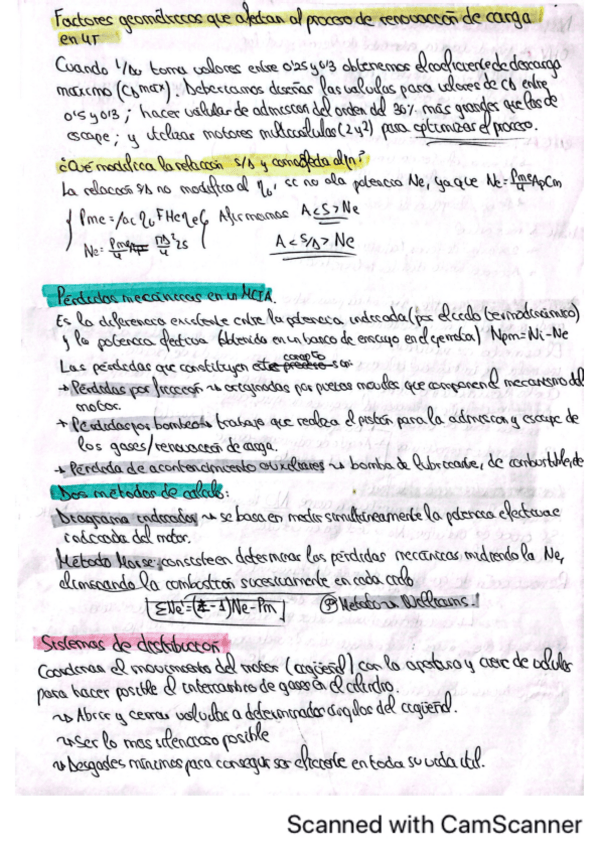 Factores geométricos que afectan al proceso de renovación de carga
en 4T
Cuando L/Dv toma valores entre 0'25 y 0'3 obtenemos el coeficiente de descarga
máximo (CD max). Deberíamos diseñar las válvulas para valores de CD entre
0'5 y 0'3; hacer válvulas de admisión del orden del 30% más grandes que las de
escape; y utilizar motores multiválvulas (2 y 2) para optimizar el proceso.
¿Qué modifica la relación S/D y como afecta al
La relación S/D no modifica al ηv, se no a la potencia Ne, ya que Ne = Pme/4 Ap Cm
Afirmamos A < S > Ne
A < S/D > Ne
Pérdidas mecánicas en un MCIA.
Es la diferencia existente entre la potencia indicada (por el ciclo termodinámico)
y la potencia efectiva (obtenida en un banco de ensayo en el cigüeñal) Npm = Ni - Ne
Las pérdidas que constituyen este campo son
→ Pérdidas por fricción ~> originadas por piezas móviles que componen el mecanismo del
motor.
+ Perdidas por bombeo ~> trabajo que realiza el pistón para la admisión y escape de
los gases/renovación de carga.
→ Pérdida de acontencimiento auxiliares ~> bomba de lubricante, de combustible, etc
Dos métodos de calculo:
Diagrama indicador ~> se basa en medir simultáneamente la potencia efectiva e
indicada del motor.
Método Morse: consiste en determinar las pérdidas mecánicas midiendo la Ne,
eliminando la combustión sucesivamente en cada
ΣNe' = (z-1)Ne - Pm Método Williams.
Sistemas de distribución
Coordenar el movimiento del motor (cigüeñal) con la apertura y cierre de válvulas
para hacer posible el intercambio de gases en el cilindro.
~> Abrir y cerrar válvulas a determinados ángulos del cigüeñal.
~> Ser lo mas silencioso posible
~> Desgastes mínimos para conseguir ser eficiente en toda su vida útil.
Scanned with CamScanner